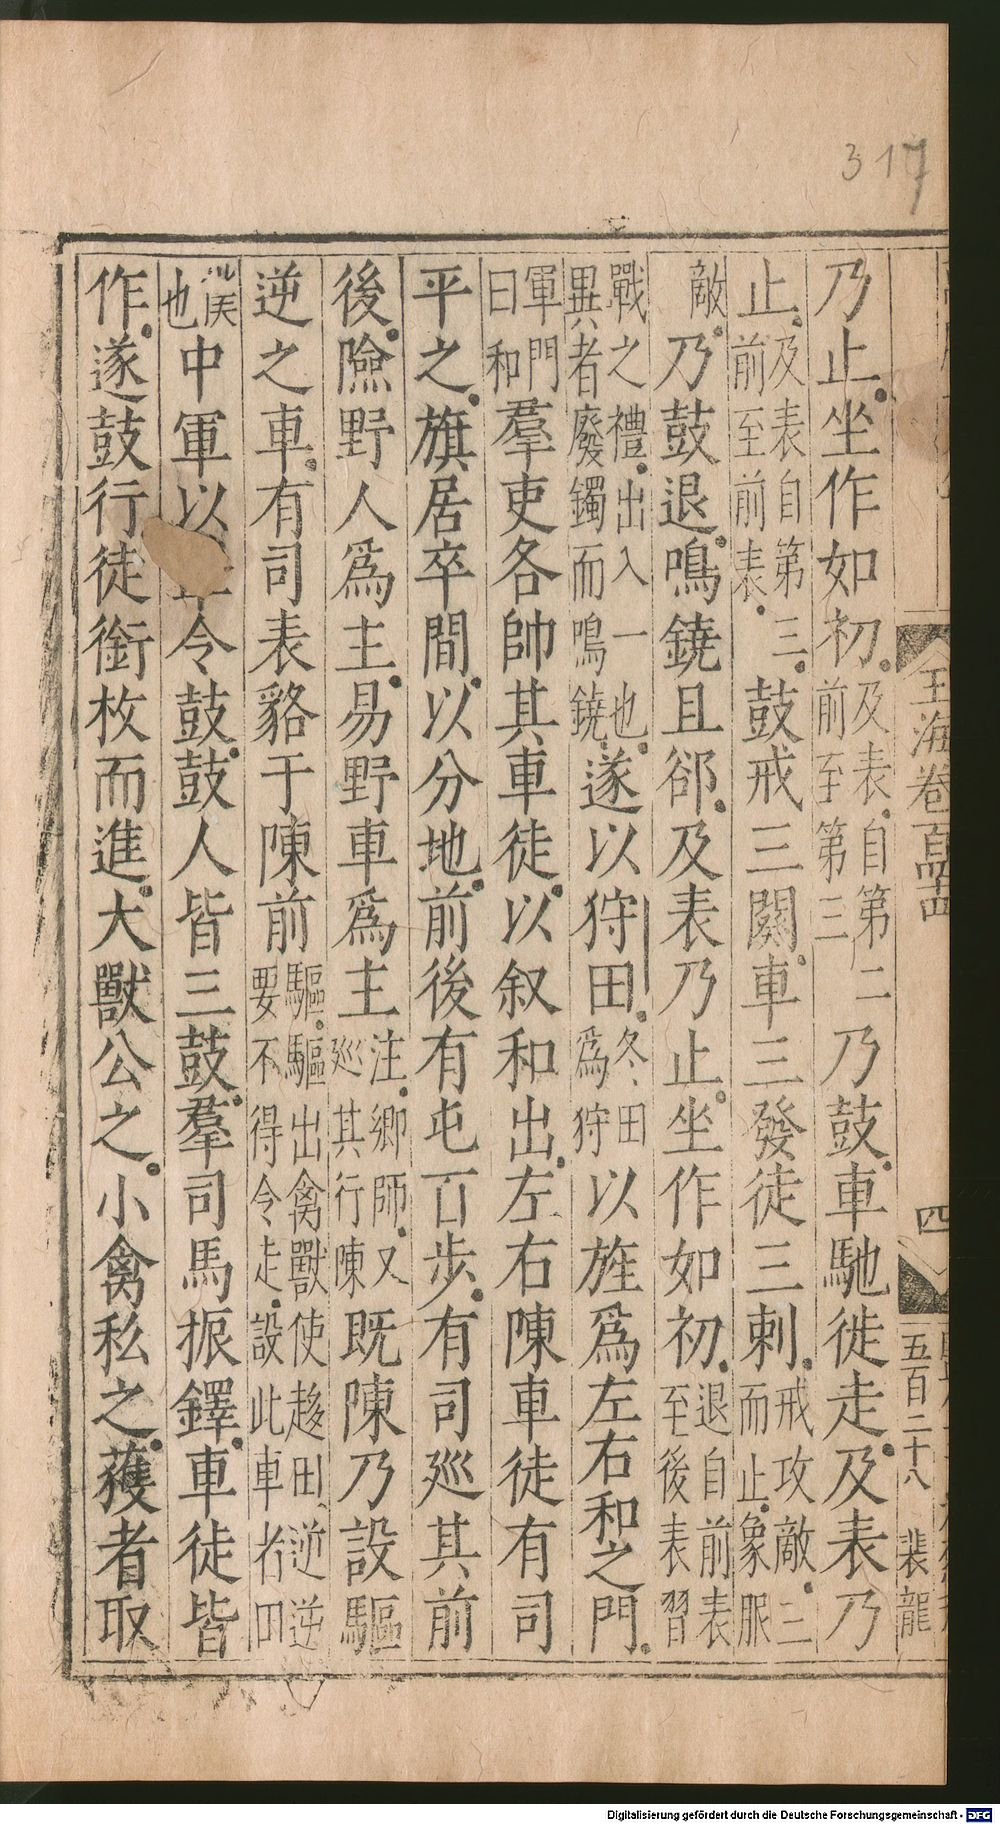 317
玉海卷百四十四
四
五百二十八
裴龍
乃止坐作如初及表自第二前至第三乃鼓車馳徙走及表乃
止及表自第三前至前表鼓戒三闋車三發徒三刺戒攻敵三而止象服
敵乃鼓退鳴鐃且郤及表乃止坐作如初退自前表至後表習
戰之禮出入一也異者廢鐲而鳴鐃遂以狩田冬田為狩以旌為左右和之門
軍門曰和羣吏各帥其車徒以叙和出左右陳車徒有司
平之旗居卒間以分地前後有屯百步有司廵其前
後險野人為主易野車為主注卿師又廵其行陳既陳乃設驅
逆之車有司表貉于陳前驅驅出禽獸使趍田逆逆要不得令走設此車者田
也中軍以令鼓鼓人皆三鼓羣司馬振鐸車徒皆
作遂鼓行徒銜枚而進大獸公之小禽私之獲者取
Digitalisierung gefördert durch die Deutsche Forschungsgemeinschaft - DFG